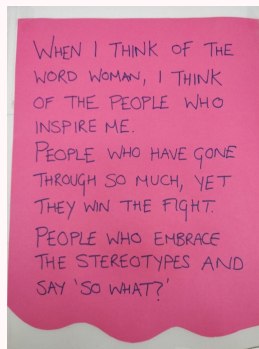 WHEN I THINK OF THE
WORD WOMAN, I THINK
OF THE PEOPLE WHO
INSPIRE ME.
PEOPLE WHO HAVE GONE
THROUGH SO MUCH, YET
THEY WIN THE FIGHT.
PEOPLE WHO EMBRACE
THE STEREOTYPES AND
SAY 'SO WHAT?'